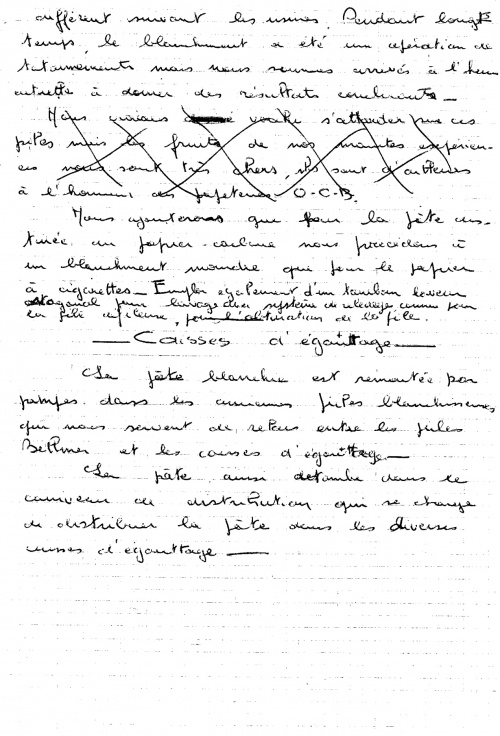 différent suivant les usines. Pendant longts
temps, le blanchiment a été un opération de
tatonnements mais nous sommes arrivés à l'heure
actuelle à donner des résultats concluants —
Nous voulu s'attarder sur ces
piles mais les fruits de nos maintes expérien-
ces nous sont très chers, ils sont d'ailleurs
à l'honneur des papeteries O-C-B.
Nous ajouterons que pour la pâte des-
tinée au papier-carbone nous procédons à
un blanchiment moindre que pour le papier
à cigarettes — Emploi également d'un tambour laveur
octogonal pour lavage avec système de relevage comme pour
la pile défileuse, pour l'obturation de la pile.
— Caisses d'égouttage —
La pâte blanchie est remontée par
pompes dans les anciennes piles blanchisseuses
qui nous servent de relais entre les piles
Bellmer et les caisses d'égouttage —
La pâte ainsi retombe dans le
caniveau de distribution qui se charge
de distribuer la pâte dans les diverses
caisses d'égouttage —